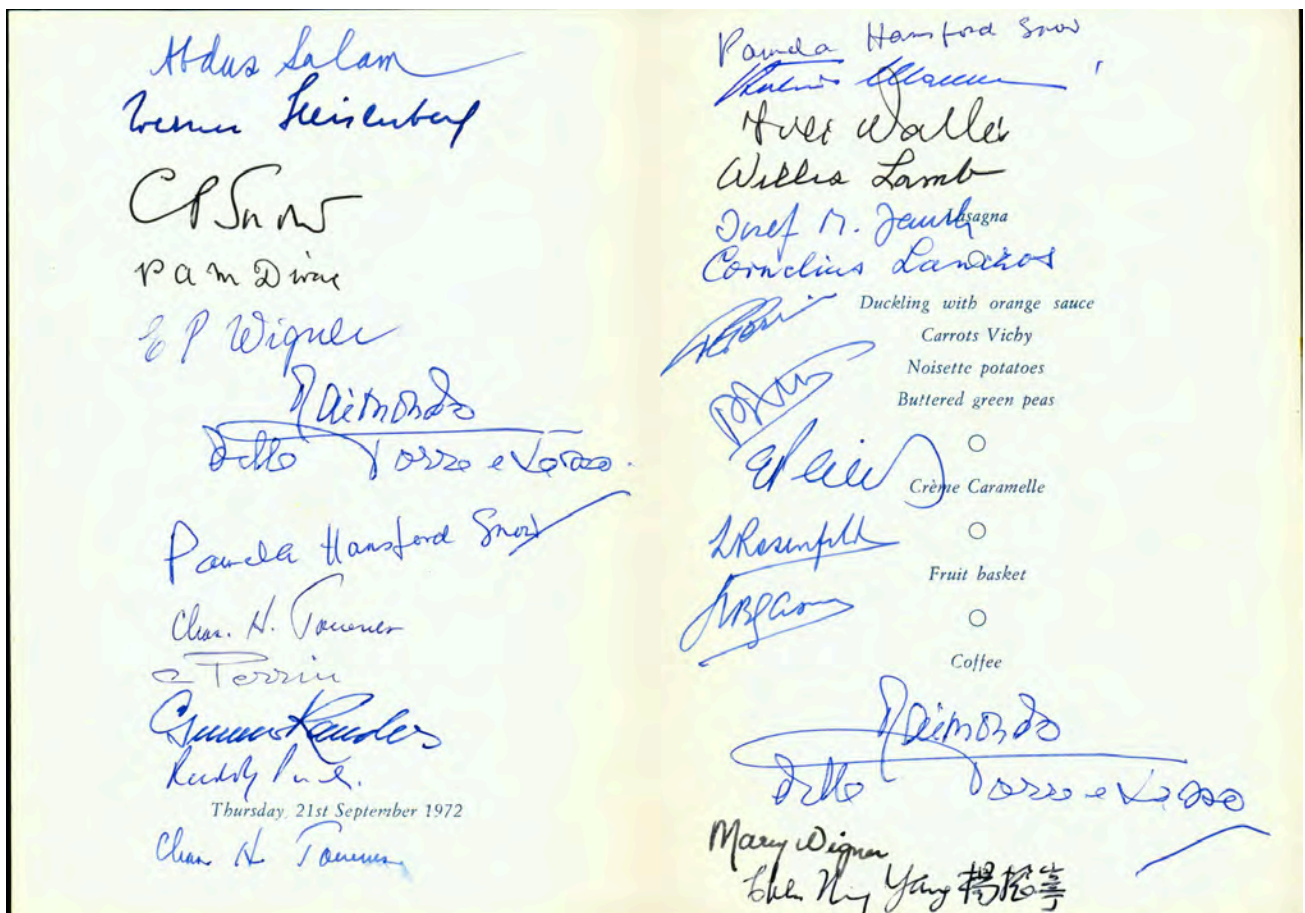 Abdus Salam
Werner Heisenberg
C P Snow
P A M Dirac
E P Wigner
Raimondo
della Torre e Tasso.
Pamela Hansford Snow
Chas. H. Townes
Perrin
Gunnar Randers
Rudolf
Thursday, 21st September 1972
Chas H. Townes
Pamela Hansford Snow
Ivar Waller
Willis Lamb
Lasagna
Josef M. Jauch
Cornelius Lanczos
Duckling with orange sauce
Carrots Vichy
Noisette potatoes
Buttered green peas
Crème Caramelle
L Rosenfeld
Fruit basket
Coffee
Raimondo
della Torre e Tasso
Mary Wigner
Chen Ning Yang 楊振寧